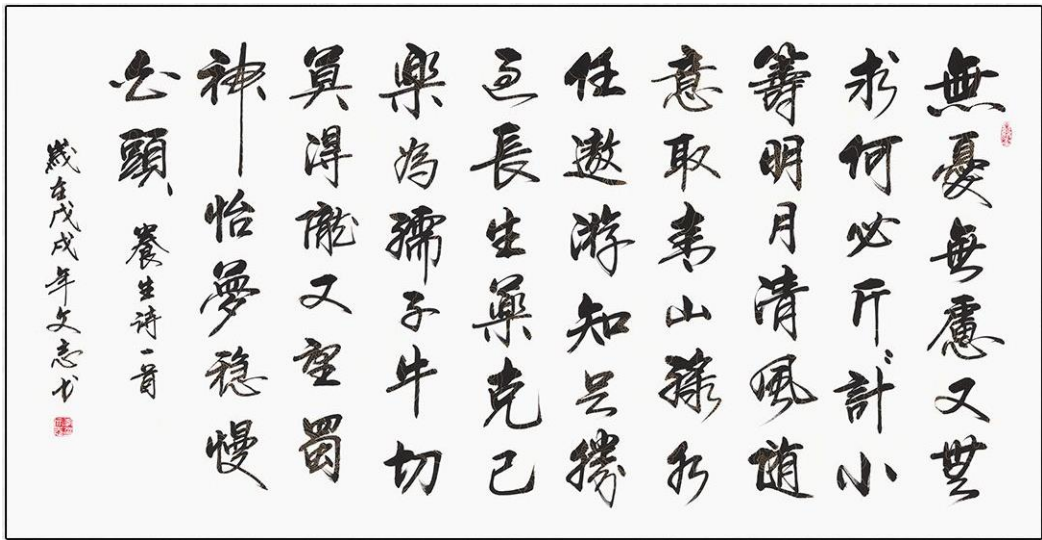 無憂無慮又無
求何必斤〻計小
籌明月清風随
意取青山緑水
任遨游知足勝
過長生藥克己
樂為孺子牛切
莫得隴又望蜀
神怡夢稳慢
白頭 養生诗一首
歲在戊戌年文志书